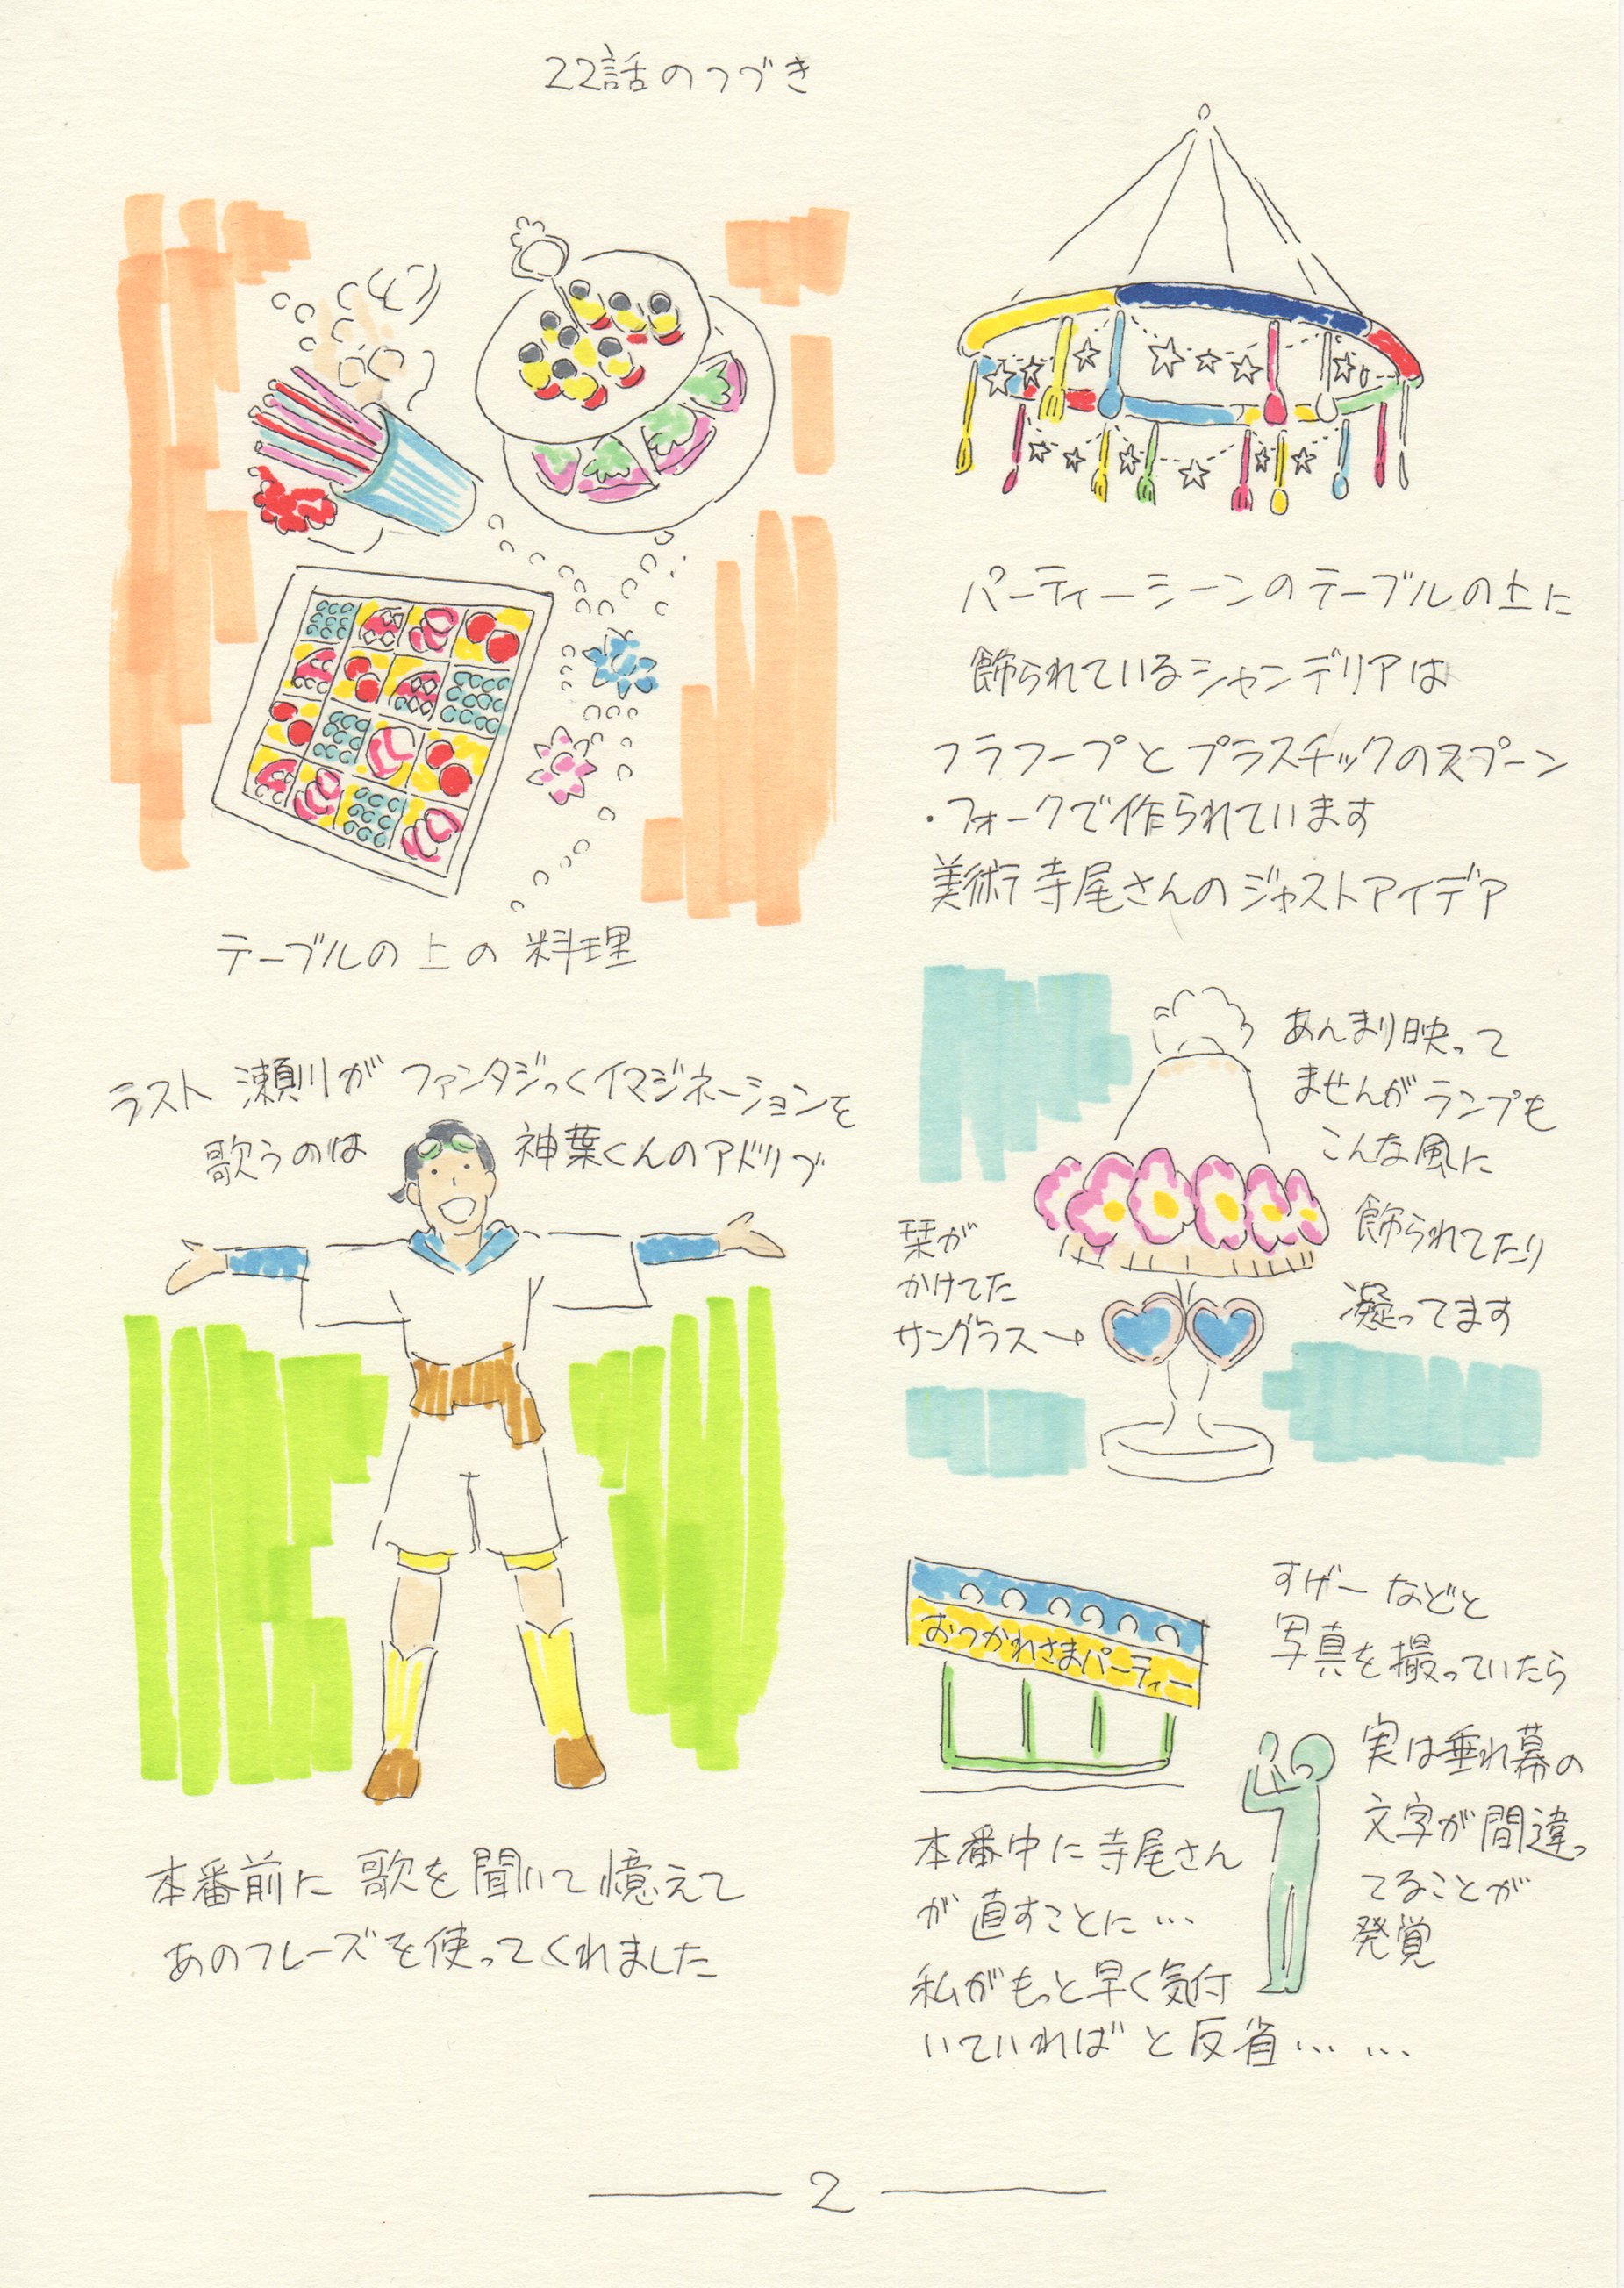 22話のつづき
テーブルの上の料理
パーティーシーンのテーブルの上に
飾られているシャンデリアは
フラフープとプラスチックのスプーン
・フォークで作られています
美術 寺尾さんのジャストアイデア
ラスト 瀬川が ファンタジっくイマジネーションを
歌うのは 神葉くんのアドリブ
本番前に 歌を聞いて憶えて
あのフレーズを使ってくれました
あんまり映って
ませんがランプも
こんな風に
飾られてたり
凝ってます
栞が
かけてた
サングラス→
おつかれさまパーティー
すげーなどと
写真を撮っていたら
実は垂れ幕の
文字が間違っ
てることが
発覚
本番中に寺尾さん
が直すことに…
私がもっと早く気付
いていればと反省……
2